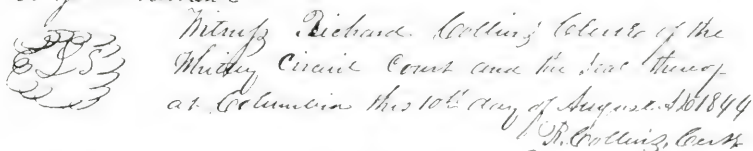 Witness Richard Collins Clerk of the
Whitley Circuit Court and the Seal thereof
at Columbia this 10th day of August AD 1844
R. Collins, Clerk
L S